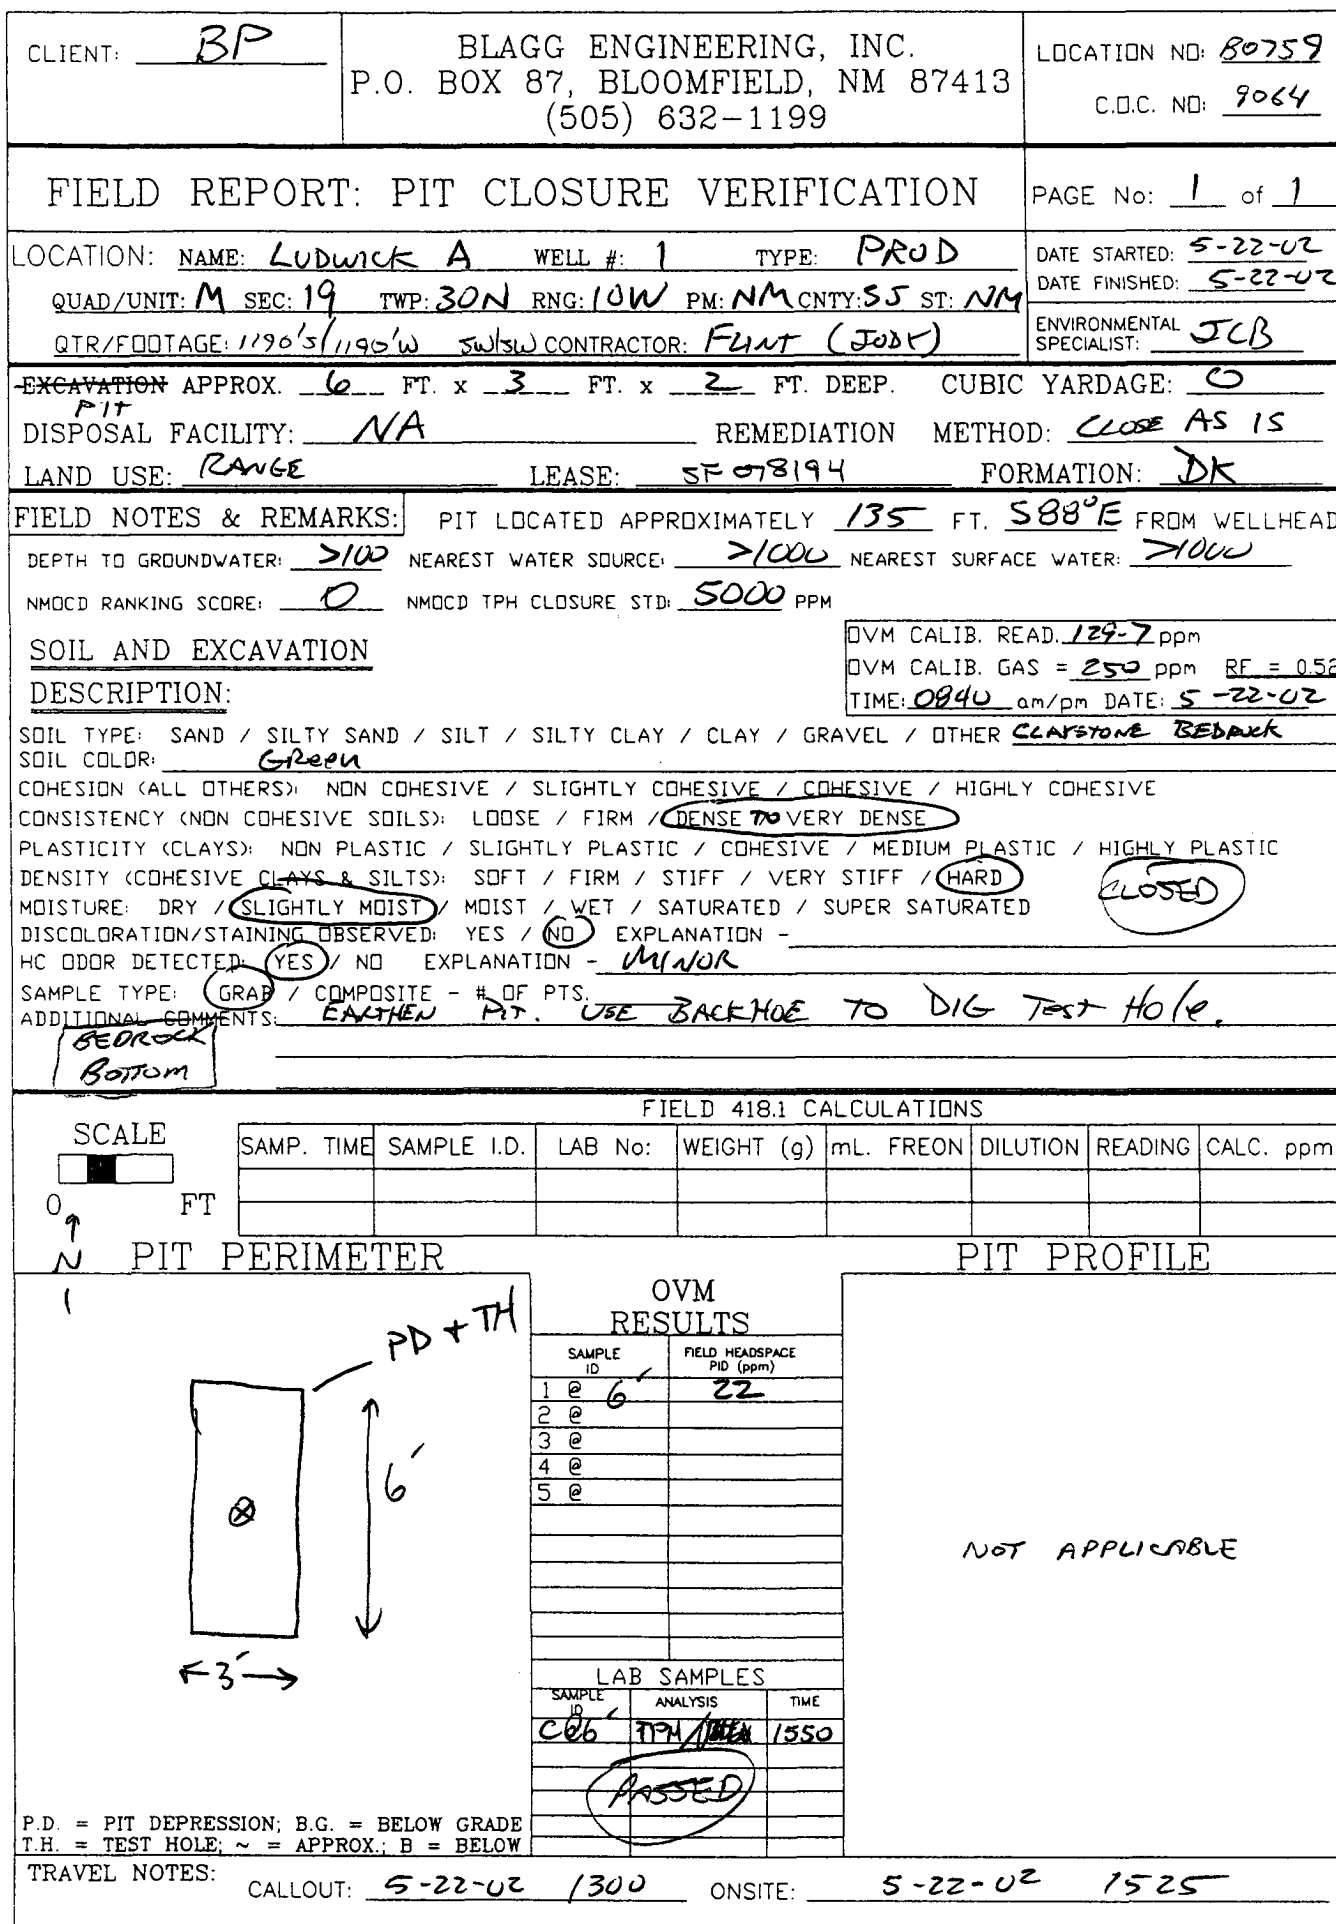 CLIENT: BP
BLAGG ENGINEERING, INC.
P.O. BOX 87, BLOOMFIELD, NM 87413
(505) 632-1199
LOCATION NO: 80759
C.O.C. NO: 9064
FIELD REPORT: PIT CLOSURE VERIFICATION
PAGE No: 1 of 1
LOCATION: NAME: LUDWICK A WELL #: 1 TYPE: PROD
QUAD/UNIT: M SEC: 19 TWP: 30N RNG: 10W PM: NM CNTY: SJ ST: NM
QTR/FOOTAGE: 1190'S/1190'W SW/SW CONTRACTOR: FLINT (JODY)
DATE STARTED: 5-22-02
DATE FINISHED: 5-22-02
ENVIRONMENTAL
SPECIALIST: JCB
EXCAVATION APPROX. 6 FT. x 3 FT. x 2 FT. DEEP. CUBIC YARDAGE: 0
PIT
DISPOSAL FACILITY: NA REMEDIATION METHOD: CLOSE AS IS
LAND USE: RANGE LEASE: SF 078194 FORMATION: DK
FIELD NOTES & REMARKS: PIT LOCATED APPROXIMATELY 135 FT. S88°E FROM WELLHEAD
DEPTH TO GROUNDWATER: >100 NEAREST WATER SOURCE: >1000 NEAREST SURFACE WATER: >1000
NMOCD RANKING SCORE: 0 NMOCD TPH CLOSURE STD: 5000 PPM
SOIL AND EXCAVATION
DESCRIPTION:
OVM CALIB. READ. 129.7 ppm
OVM CALIB. GAS = 250 ppm RF = 0.52
TIME: 0840 am/pm DATE: 5-22-02
SOIL TYPE: SAND / SILTY SAND / SILT / SILTY CLAY / CLAY / GRAVEL / OTHER CLAYSTONE BEDROCK
SOIL COLOR: GREEN
COHESION (ALL OTHERS): NON COHESIVE / SLIGHTLY COHESIVE / COHESIVE / HIGHLY COHESIVE
CONSISTENCY (NON COHESIVE SOILS): LOOSE / FIRM / DENSE TO VERY DENSE
PLASTICITY (CLAYS): NON PLASTIC / SLIGHTLY PLASTIC / COHESIVE / MEDIUM PLASTIC / HIGHLY PLASTIC
DENSITY (COHESIVE CLAYS & SILTS): SOFT / FIRM / STIFF / VERY STIFF / HARD
CLOSED
MOISTURE: DRY / SLIGHTLY MOIST / MOIST / WET / SATURATED / SUPER SATURATED
DISCOLORATION/STAINING OBSERVED: YES / NO EXPLANATION -
HC ODOR DETECTED: YES / NO EXPLANATION - MINOR
SAMPLE TYPE: GRAB / COMPOSITE - # OF PTS.
ADDITIONAL COMMENTS: EARTHEN PIT. USE BACKHOE TO DIG Test Hole.
BEDROCK
BOTTOM
FIELD 418.1 CALCULATIONS
SCALE
0 FT
SAMP. TIME SAMPLE I.D. LAB No: WEIGHT (g) mL. FREON DILUTION READING CALC. ppm
N
PIT PERIMETER
PIT PROFILE
PD + TH
6'
3'
OVM
RESULTS
SAMPLE ID FIELD HEADSPACE PID (ppm)
1 @ 6' 22
2 @
3 @
4 @
5 @
NOT APPLICABLE
LAB SAMPLES
SAMPLE ID ANALYSIS TIME
C@6' TPH/ 1550
PASSED
P.D. = PIT DEPRESSION; B.G. = BELOW GRADE
T.H. = TEST HOLE; ~ = APPROX.; B = BELOW
TRAVEL NOTES: CALLOUT: 5-22-02 1300 ONSITE: 5-22-02 1525